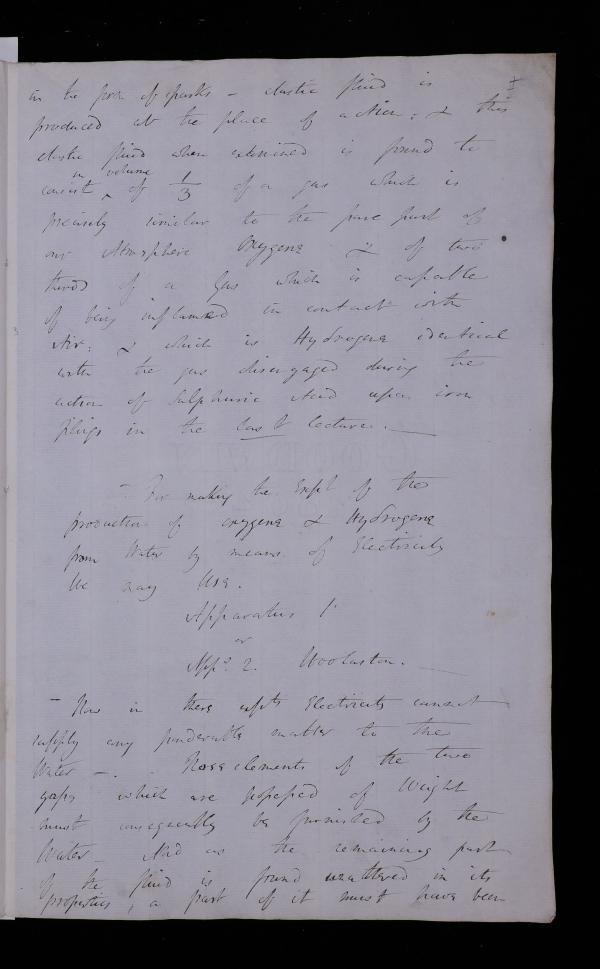 in the form of sparks – elastic fluid is
produced at the place of action; & this
elastic fluid when examined is found to
in volume
consist ‸ of 1/3 of a gas which is
precisely similar to the pure part of
our Atmosphere Oxygene & of two
thirds of a gas which is capable
of being inflamed in contact with
Air: & which is Hydrogene identical
with the gas disengaged during the
action of Sulphuric Acid upon iron
filings in the last lecture. —
– For making the Expt of the
production of oxygene & Hydrogene
from Water by means of Electricity
We may Use.
Apparatus 1
or
App: 2. Woolaston. —
– Now in these expts Electricity cannot
supply any ponderable matter to the
Water –. Those elements of the two
gases which are possessed of Weight
must consequently be furnished by the
Water – And as the remaining part
of the fluid is found unaltered in its
properties, a part of it must have been